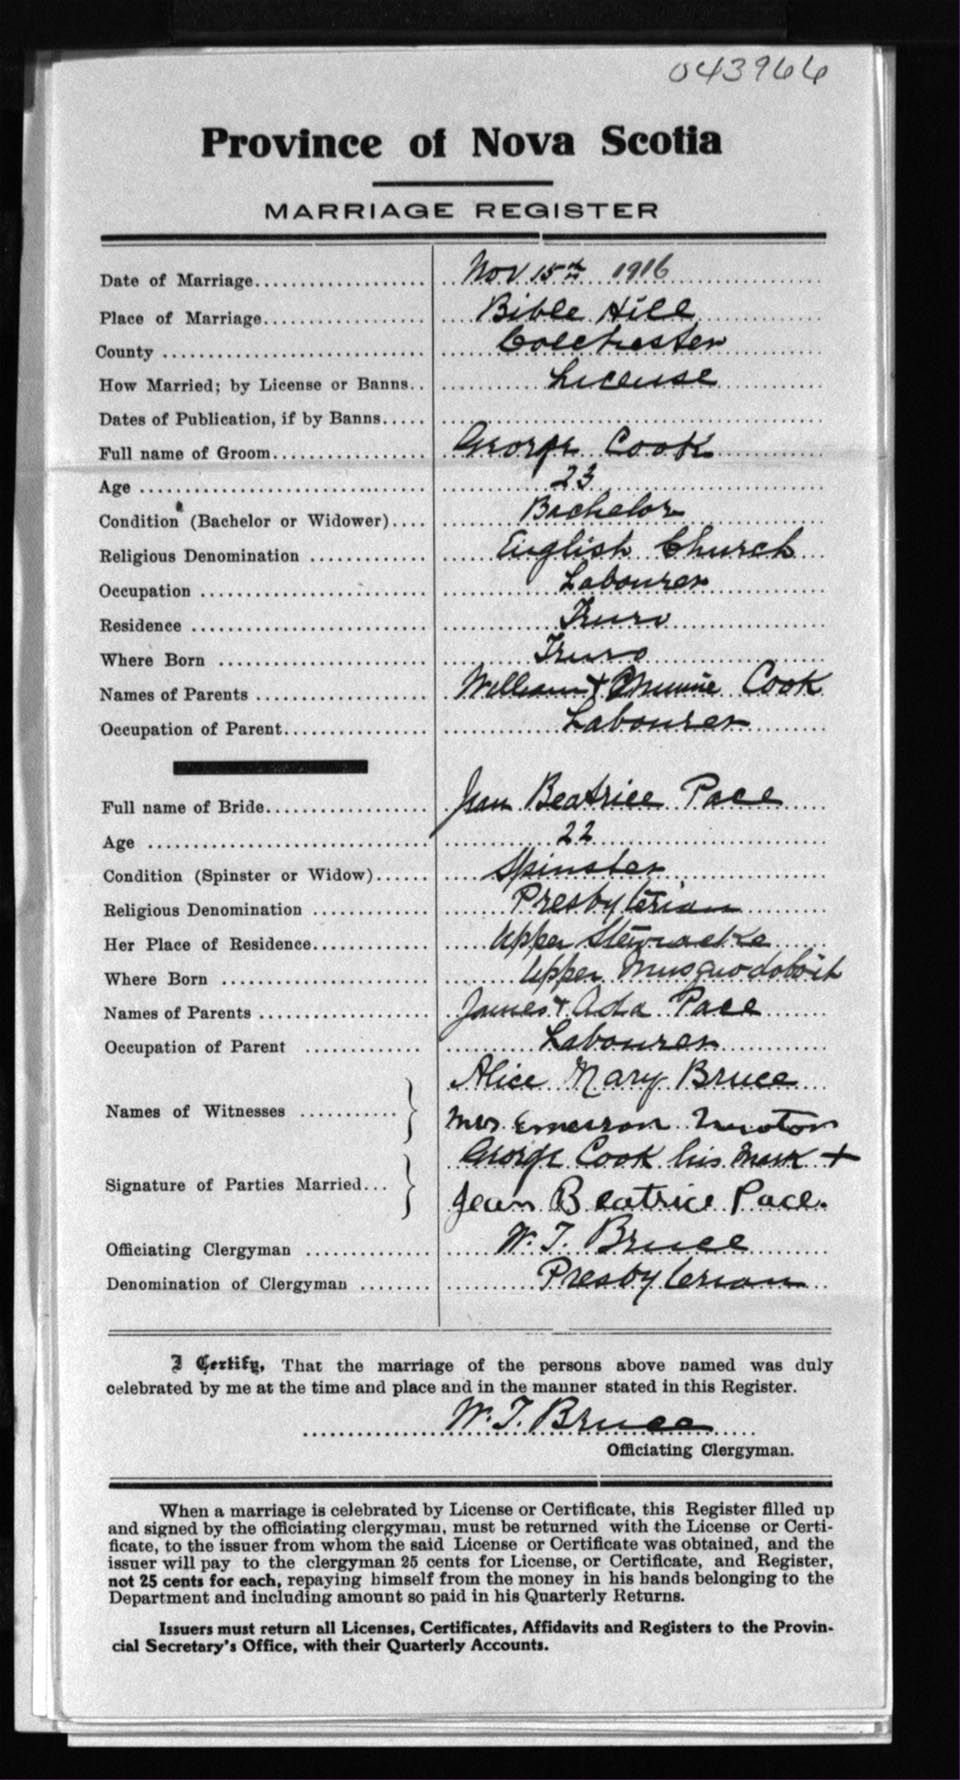 043966
Province of Nova Scotia
MARRIAGE REGISTER
Date of Marriage.................... Nov 15th 1916
Place of Marriage................... Bible Hill
County ............................ Colchester
How Married; by License or Banns.. License
Dates of Publication, if by Banns.....
Full name of Groom.................. George Cook
Age ................................ 23
Condition (Bachelor or Widower).... Bachelor
Religious Denomination ............ English Church
Occupation ........................ Labourer
Residence ......................... Truro
Where Born ........................ Truro
Names of Parents .................. William & Cook
Occupation of Parent................ Labourer
Full name of Bride.................. Jean Beatrice Pace
Age ................................ 22
Condition (Spinster or Widow)...... Spinster
Religious Denomination ............ Presbyterian
Her Place of Residence............. Upper Stewiacke
Where Born ........................ Upper Musquodoboit
Names of Parents .................. James & Ada Pace
Occupation of Parent ............. Labourer
Alice Mary Bruce
Names of Witnesses ...........
Mrs. Emerson
George Cook his mark +
Signature of Parties Married...
Jean Beatrice Pace.
Officiating Clergyman ............. W. T. Bruce
Denomination of Clergyman ........ Presbyterian
I Certify, That the marriage of the persons above named was duly
celebrated by me at the time and place and in the manner stated in this Register.
W. T. Bruce
Officiating Clergyman.
When a marriage is celebrated by License or Certificate, this Register filled up
and signed by the officiating clergyman, must be returned with the License or Certi-
ficate, to the issuer from whom the said License or Certificate was obtained, and the
issuer will pay to the clergyman 25 cents for License, or Certificate, and Register,
not 25 cents for each, repaying himself from the money in his hands belonging to the
Department and including amount so paid in his Quarterly Returns.
Issuers must return all Licenses, Certificates, Affidavits and Registers to the Provin-
cial Secretary's Office, with their Quarterly Accounts.